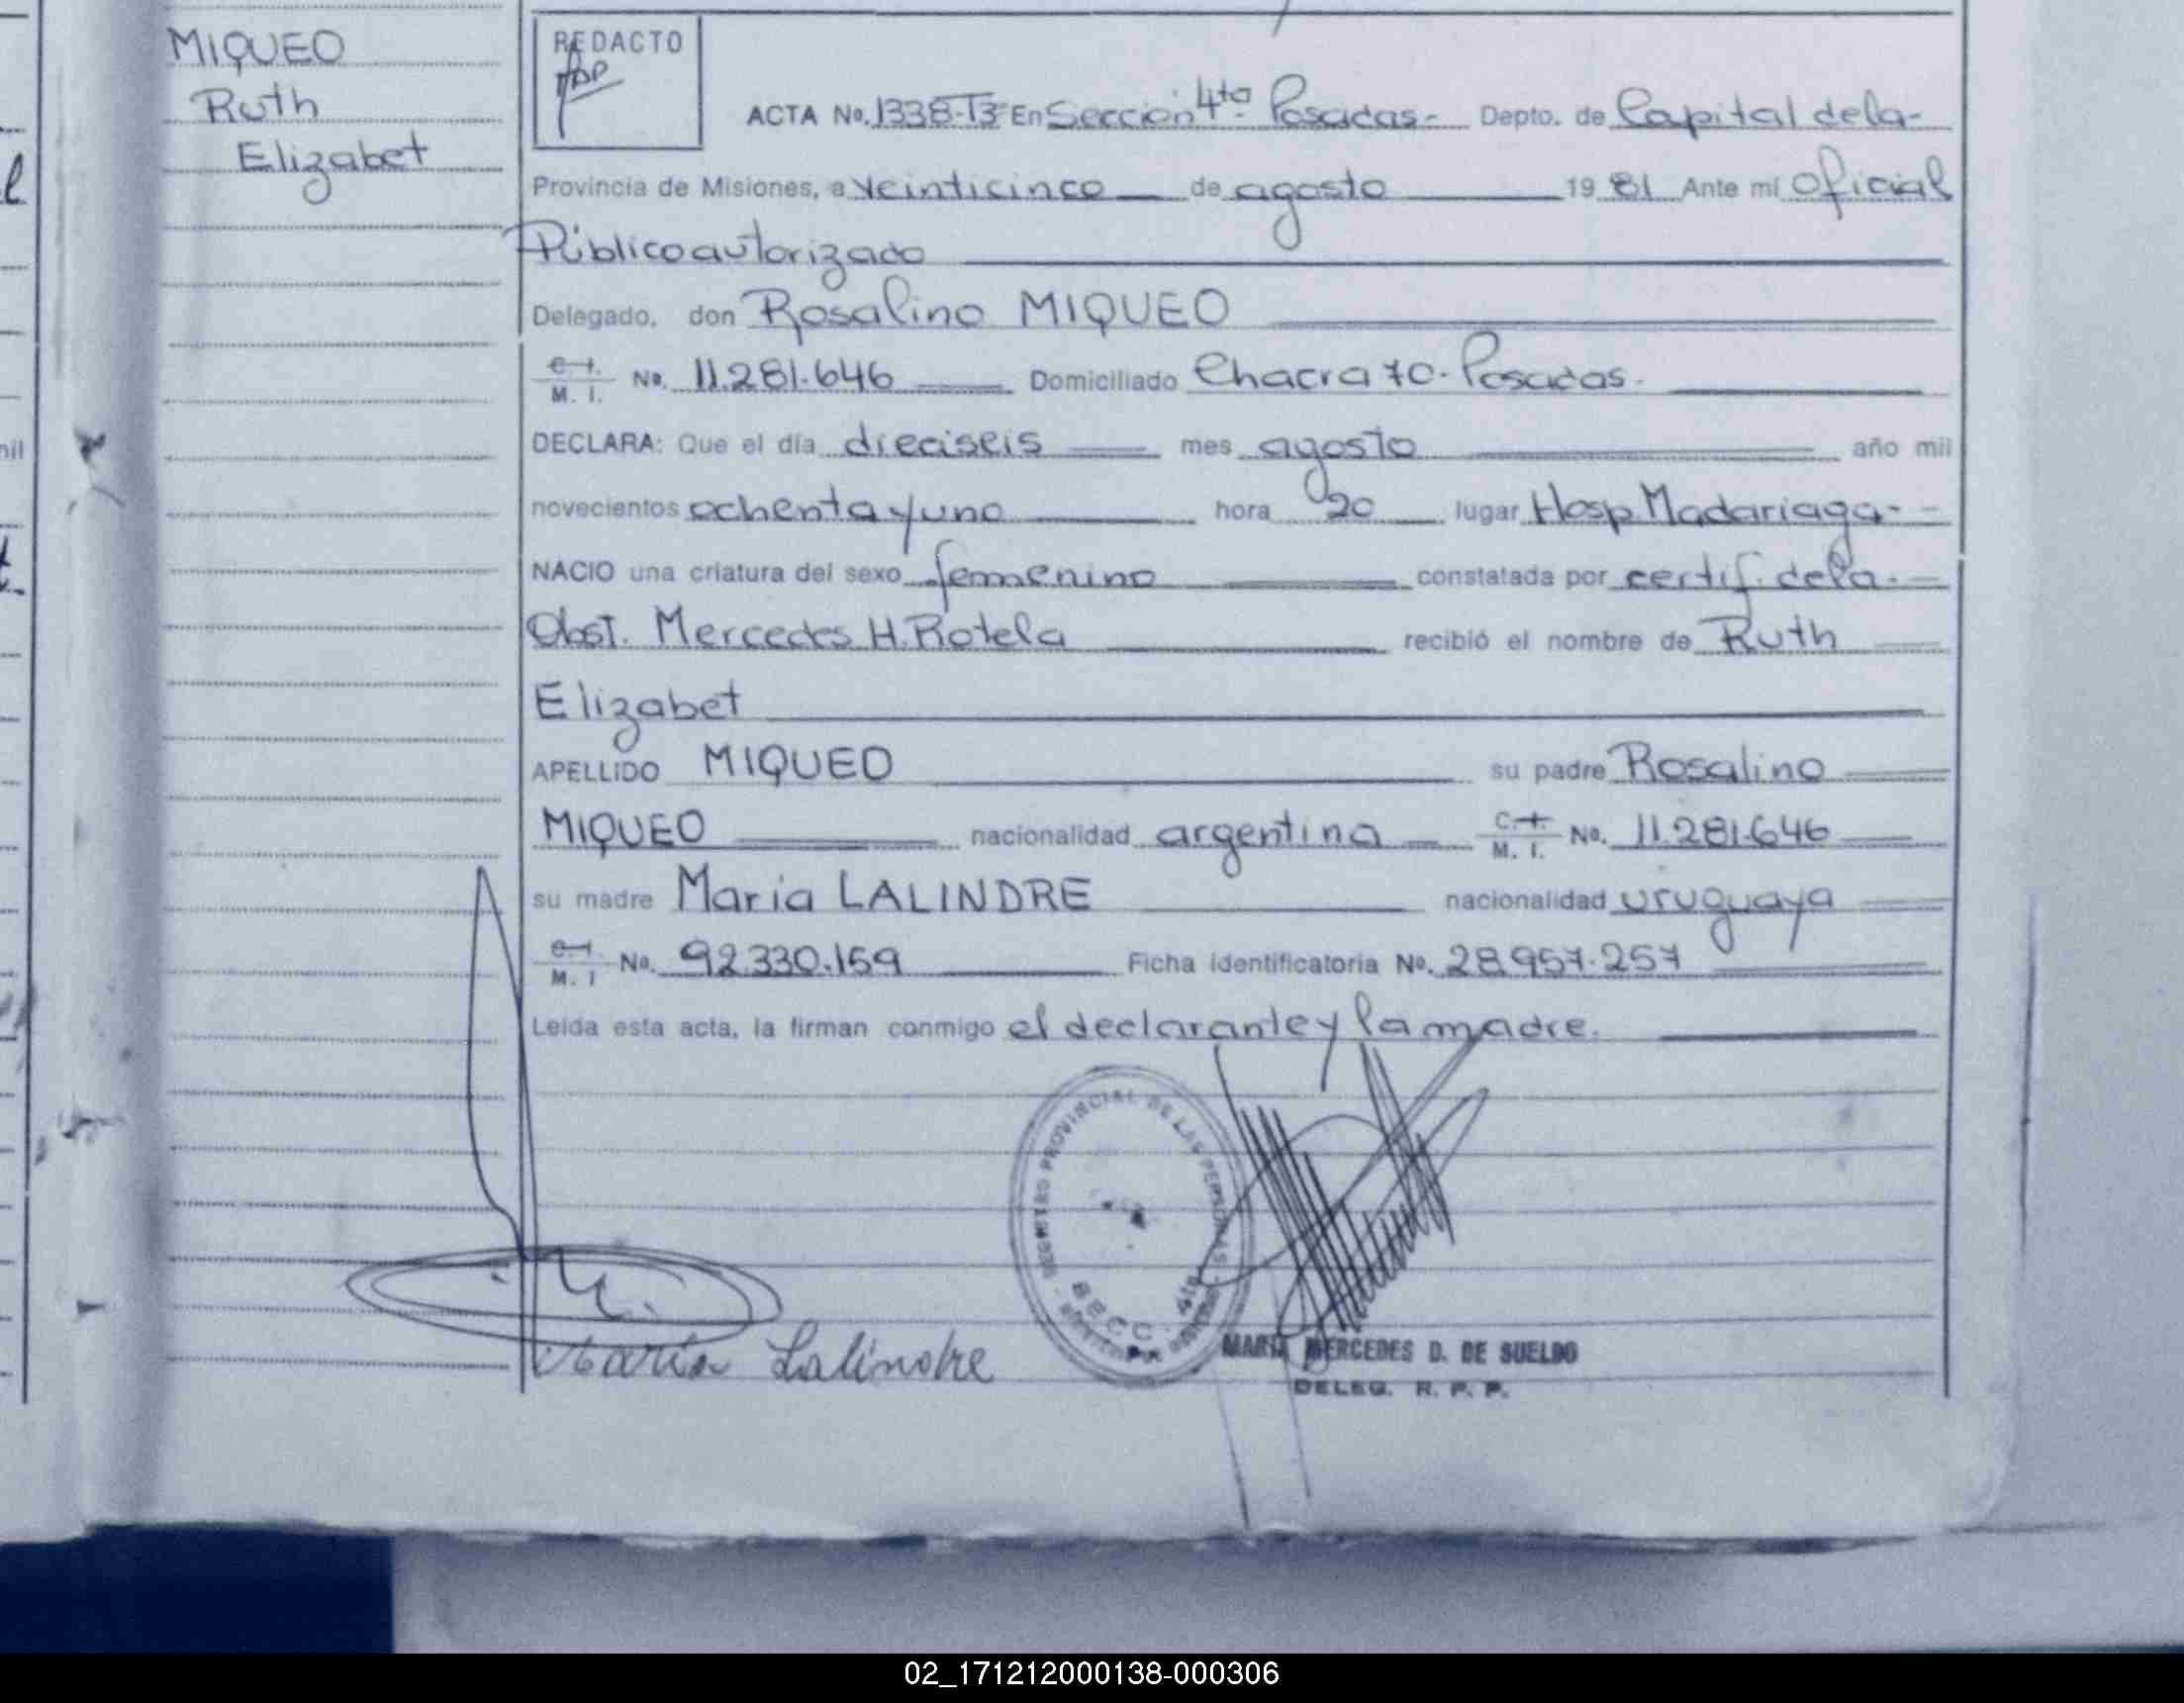 MIQUEO
Ruth
Elizabet
REDACTO
ACTA No. 1338-T3 En Sección 4ta. Posadas- Depto. de Capital de la-
Provincia de Misiones, a veinticinco de agosto 1981 Ante mí Oficial
Público autorizado
Delegado, don Rosalino MIQUEO
C. I. M. I. No. 11.281.646 Domiciliado Chacra 70. Posadas.
DECLARA: Que el día dieciseis mes agosto año mil
novecientos ochenta y uno hora 20 lugar Hosp. Madariaga-
NACIO una criatura del sexo femenino constatada por certif. de la.
Obst. Mercedes H. Rotela recibió el nombre de Ruth
Elizabet
APELLIDO MIQUEO su padre Rosalino
MIQUEO nacionalidad argentina C. I. M. I. No. 11.281.646
su madre María LALINDRE nacionalidad uruguaya
C. I. M. I No. 92.330.159 Ficha identificatoria No. 28.957.257
Leída esta acta, la firman conmigo el declarante y la madre.
REGISTRO PROVINCIAL DE LAS PERSONAS
SECC. 4ta
María Lalindre
MARIA MERCEDES D. DE SUELDO
DELEG. R. P. P.
02_171212000138-000306